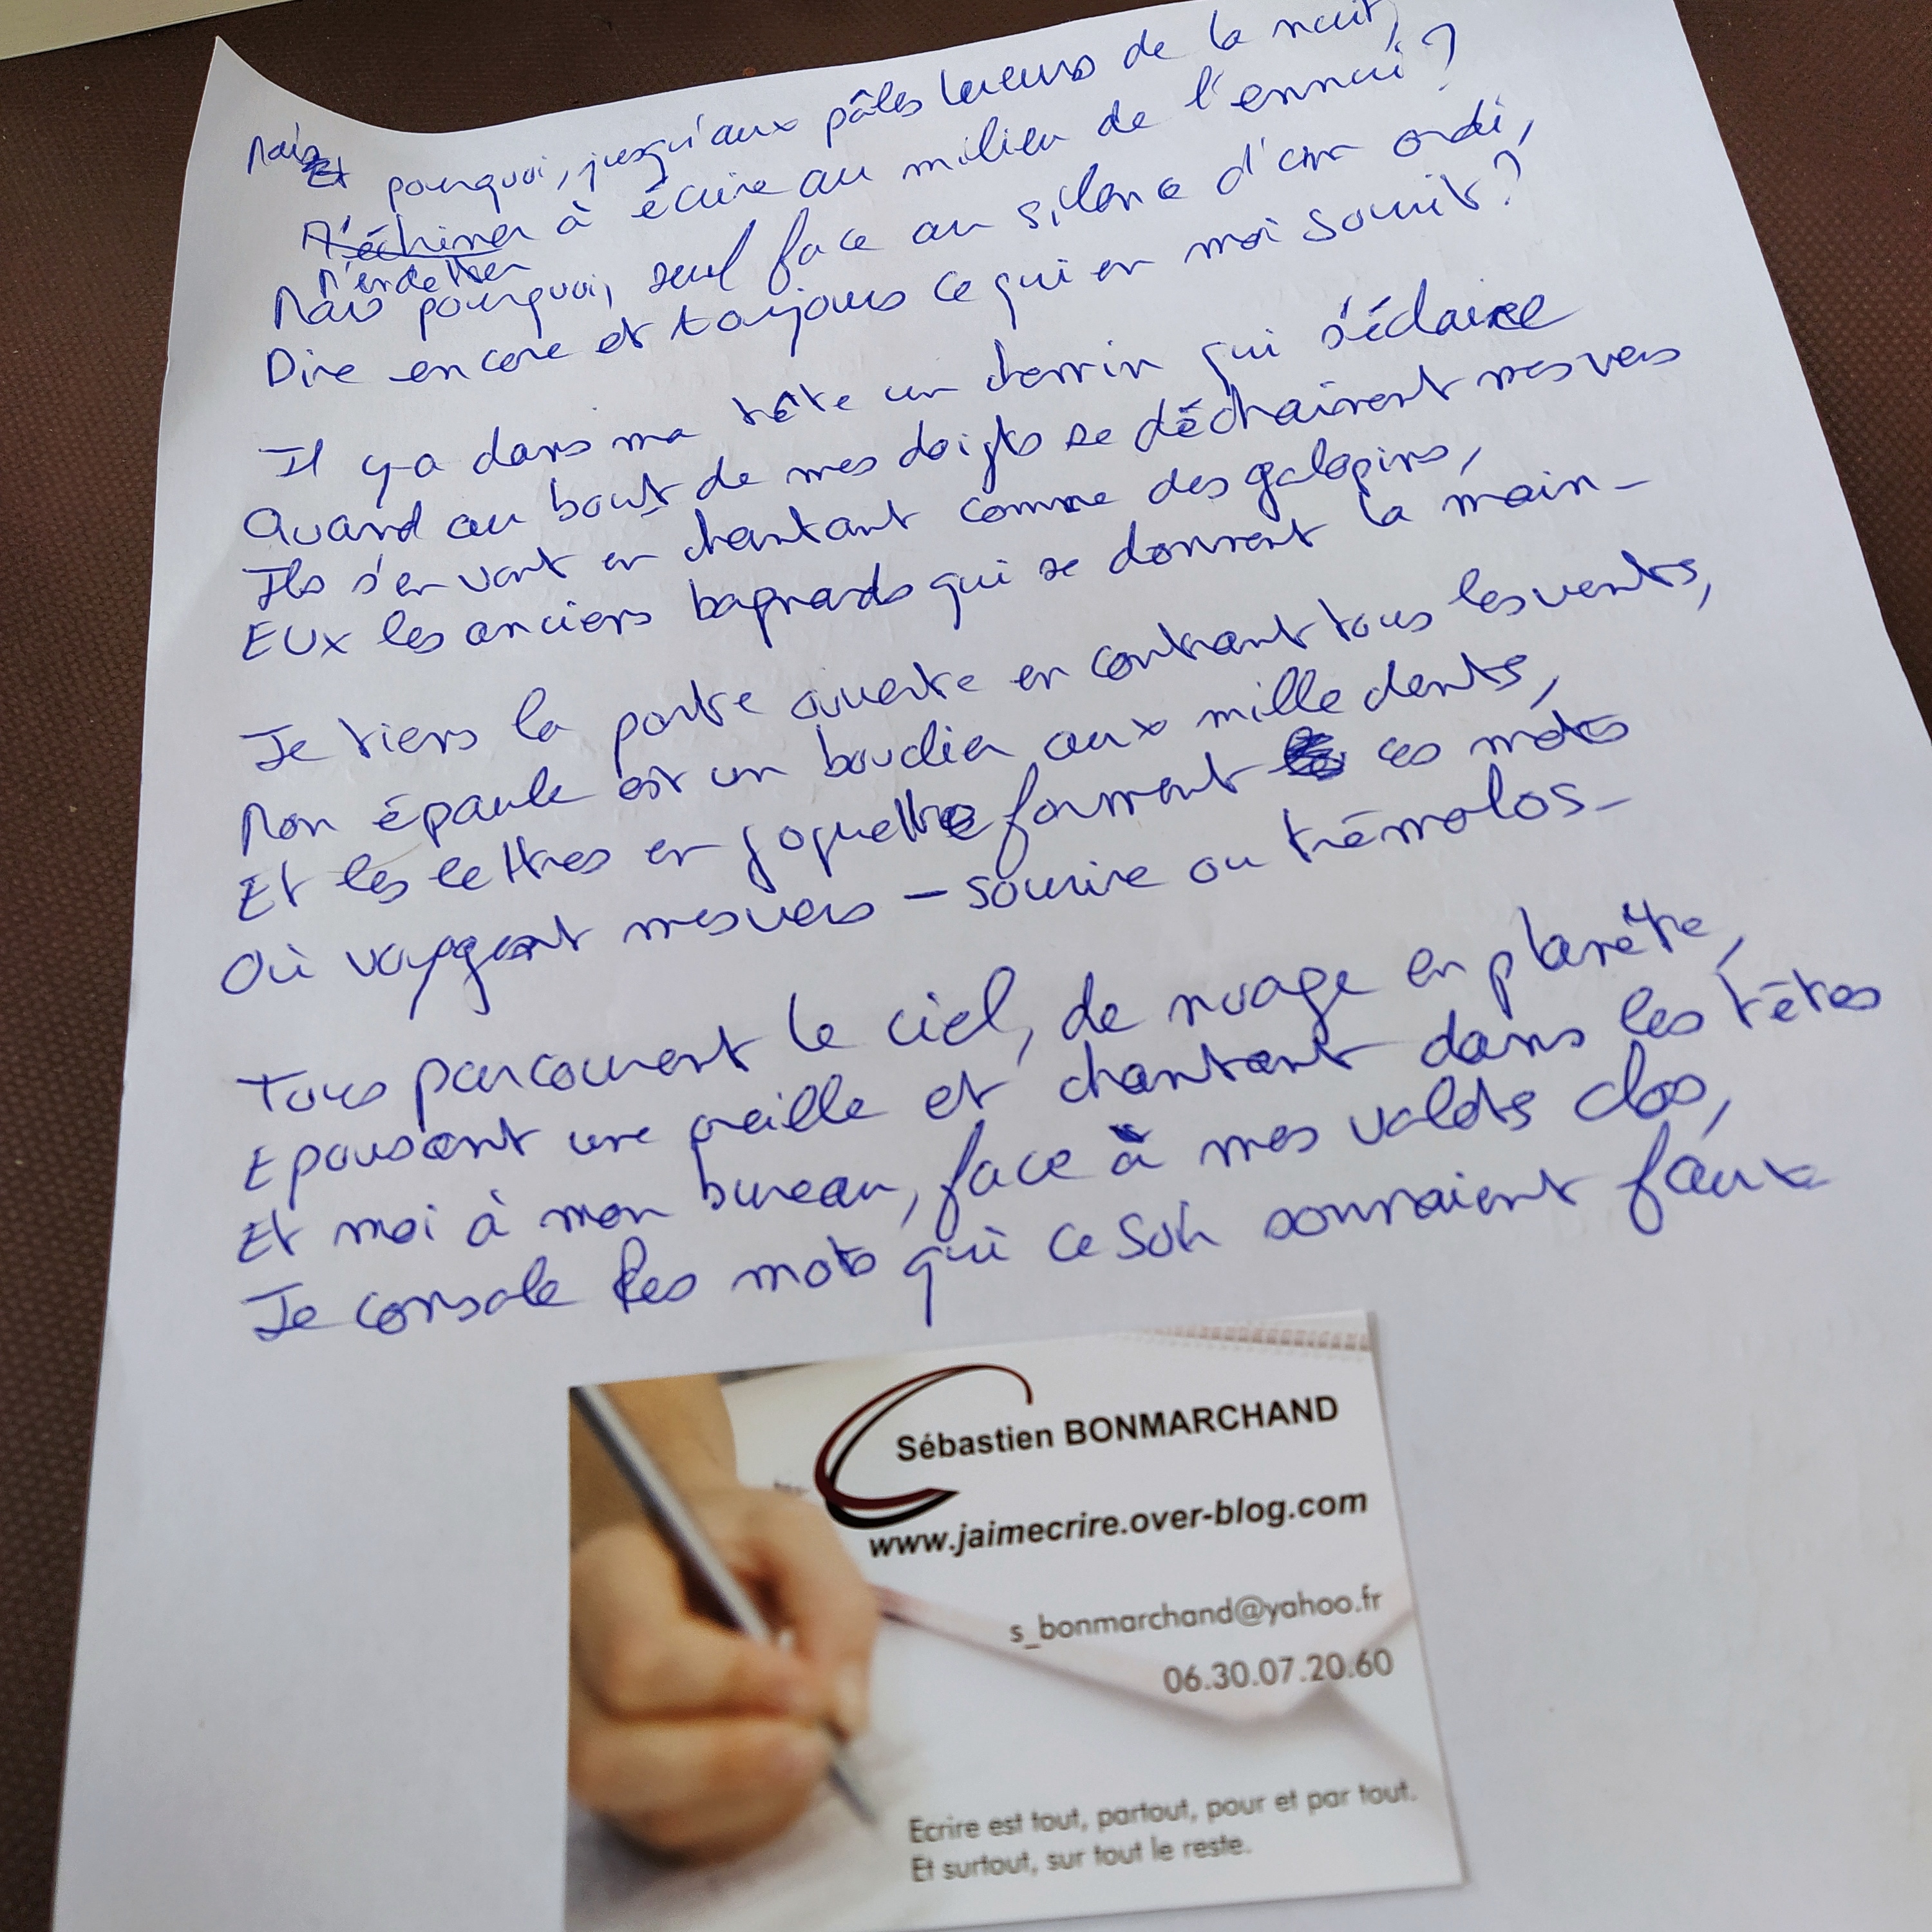 Mais pourquoi, jusqu'aux pâles lueurs de la nuit,
M'échiner à écrire au milieu de l'ennui ?
M'endetter
Mais pourquoi, seul face au silence d'un ordi,
Dire encore et toujours ce qui en moi sourit ?
Il y a dans ma tête un chemin qui s'éclaire
Quand au bout de mes doigts se déchaînent mes vers
Ils s'en vont en chantant comme des galopins,
EUx les anciens bagnards qui se donnent la main -
Je tiens la porte ouverte en contrant tous les vents,
Mon épaule est un bouclier aux mille dents,
Et les lettres en goguette forment ces mots
Où voyagent mes vers - sourire ou trémolos -
Tous parcourent le ciel, de nuage en planète,
Epousent une oreille et chantent dans les têtes
Et moi à mon bureau, face à mes volets clos,
Je console les mots qui ce soir sonnaient faux
Sébastien BONMARCHAND
www.jaimecrire.over-blog.com
s_bonmarchand@yahoo.fr
06.30.07.20.60
Ecrire est tout, partout, pour et par tout.
Et surtout, sur tout le reste.